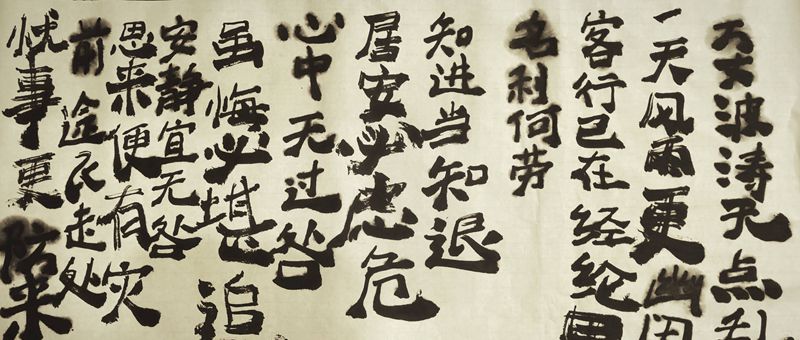 万丈波涛无点乱
一天风雨更幽
客行已在经纶
名利何劳
知进当知退
居安必虑危
心中无过咎
虽悔必堪追
安静宜无咎
思来便有灾
前途民走处
忧事更防来